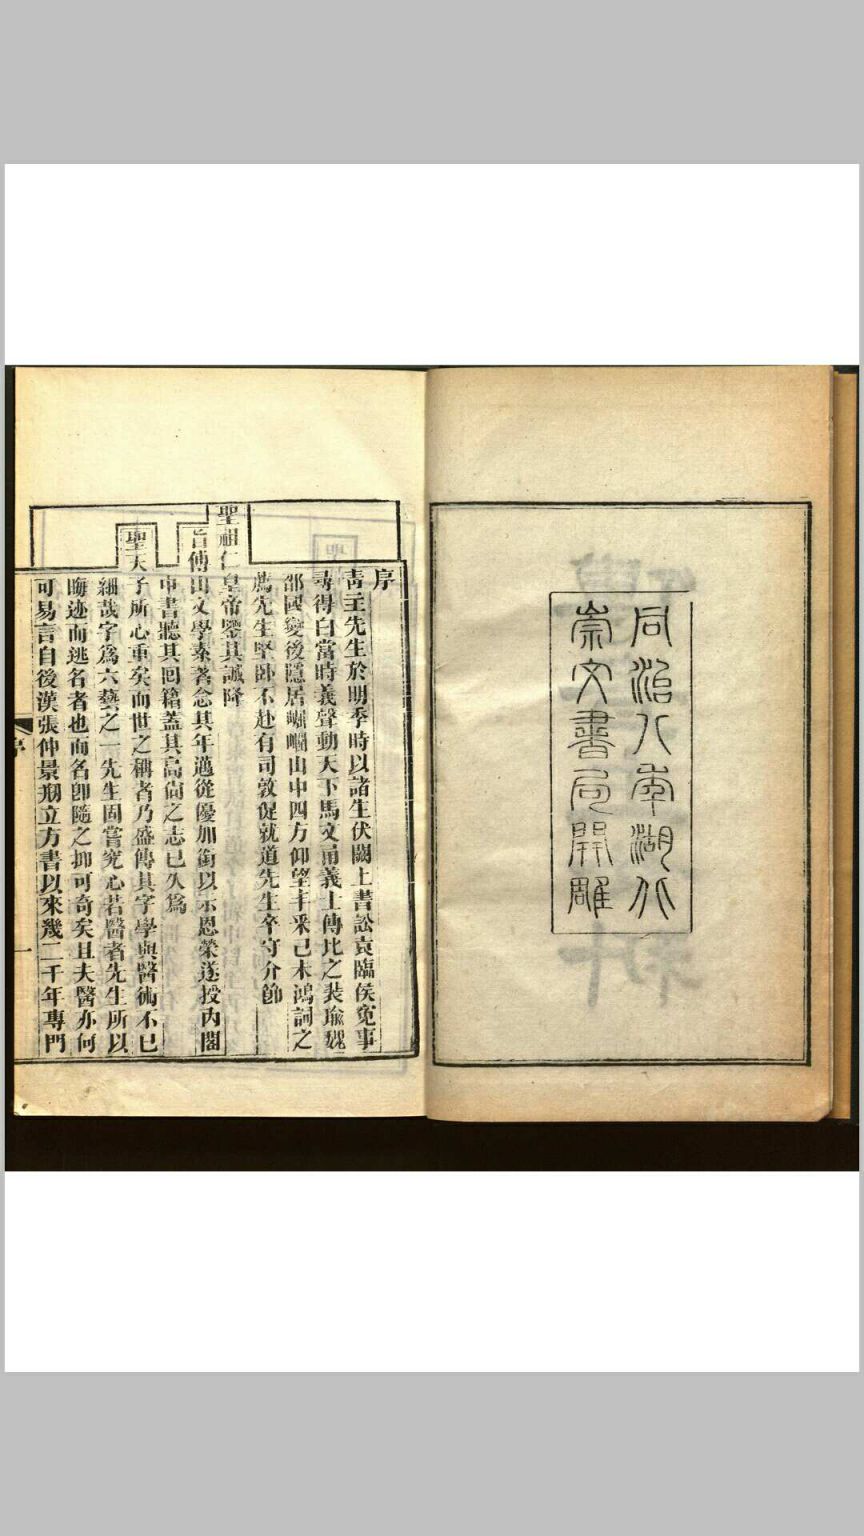 同治八年湖北
崇文書局開雕
序
青主先生於明季時以諸生伏闕上書訟袁臨侯寃事
尋得白當時義聲動天下馬文甬義士傳比之裴瑜魏
邵國變後隱居崛𡸗山中四方仰望丰采己未鴻詞之
薦先生堅卧不赴有司敦促就道先生卒守介節
聖祖仁皇帝鑒其誠降
旨傅山文學素著念其年邁從優加銜以示恩榮遂授內閣
中書聽其回籍蓋其高尙之志已久爲
聖天子所心重矣而世之稱者乃盛傳其字學與醫術不已
細哉字爲六藝之一先生固嘗究心若醫者先生所以
晦迹而逃名者也而名卽隨之抑可奇矣且夫醫亦何
可易言自後漢張仲景剏立方書以來幾二千年專門
序
一